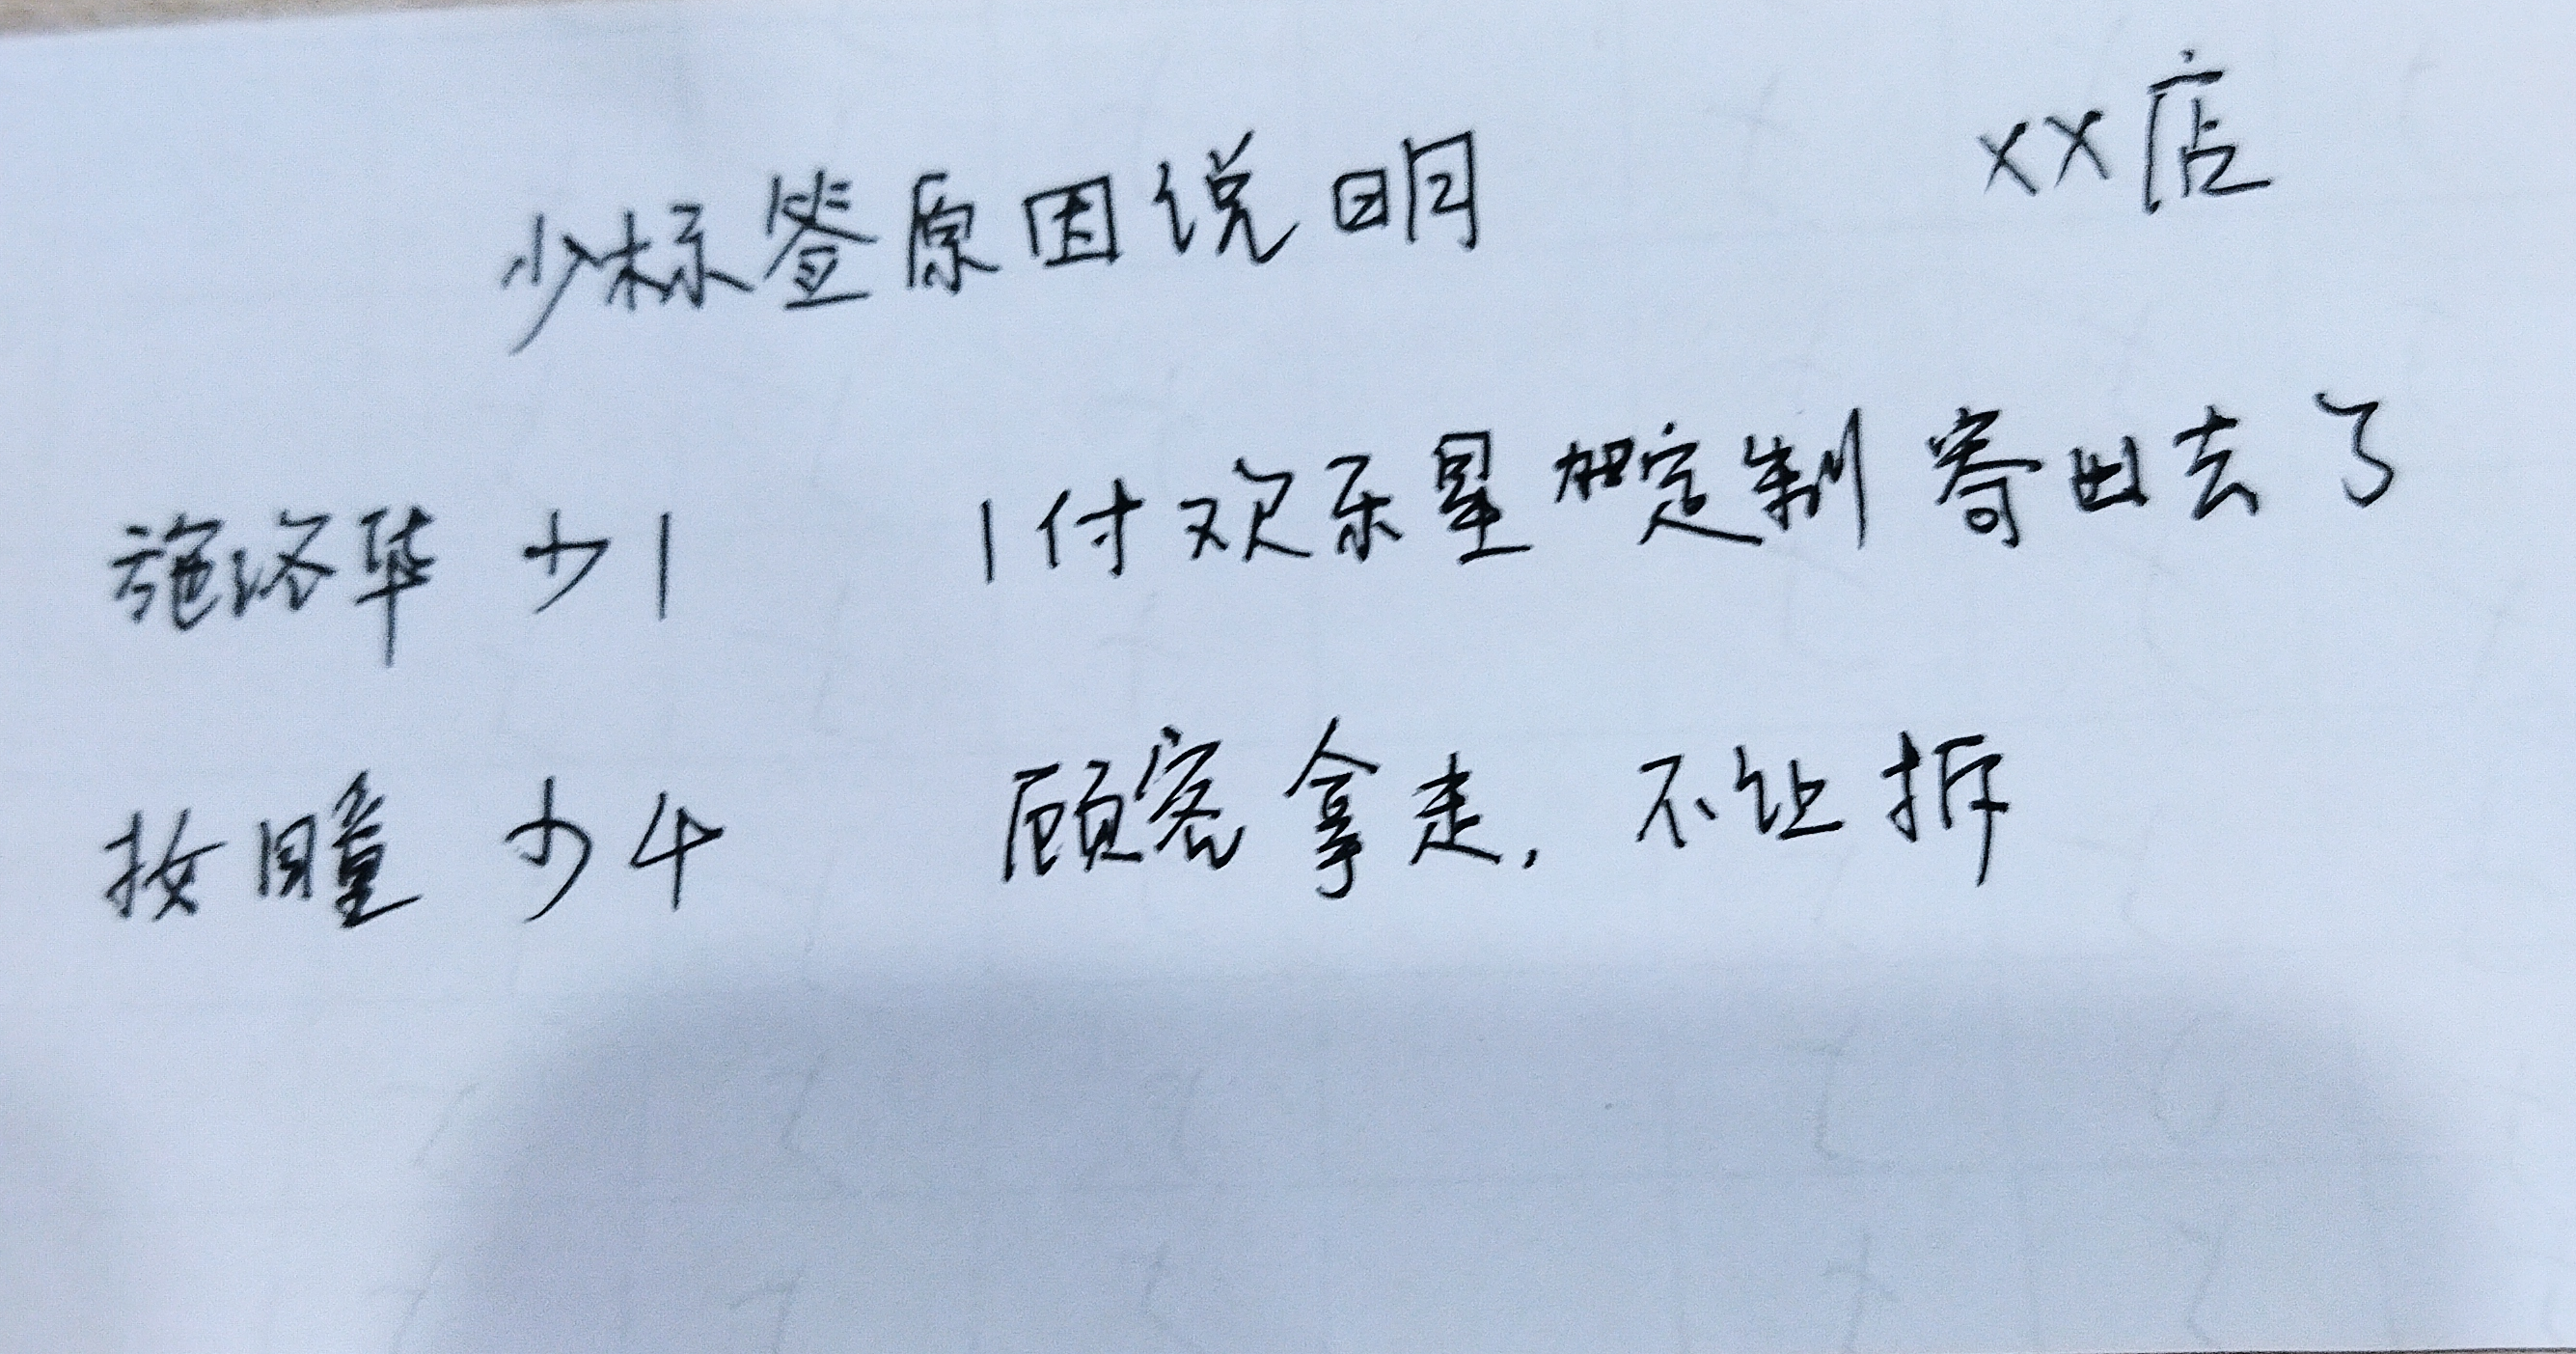 XX店
少标签原因说明
施洛华 少1 1付欢乐星加定制寄出去了
牧瞳 少4 顾客拿走, 不让拆